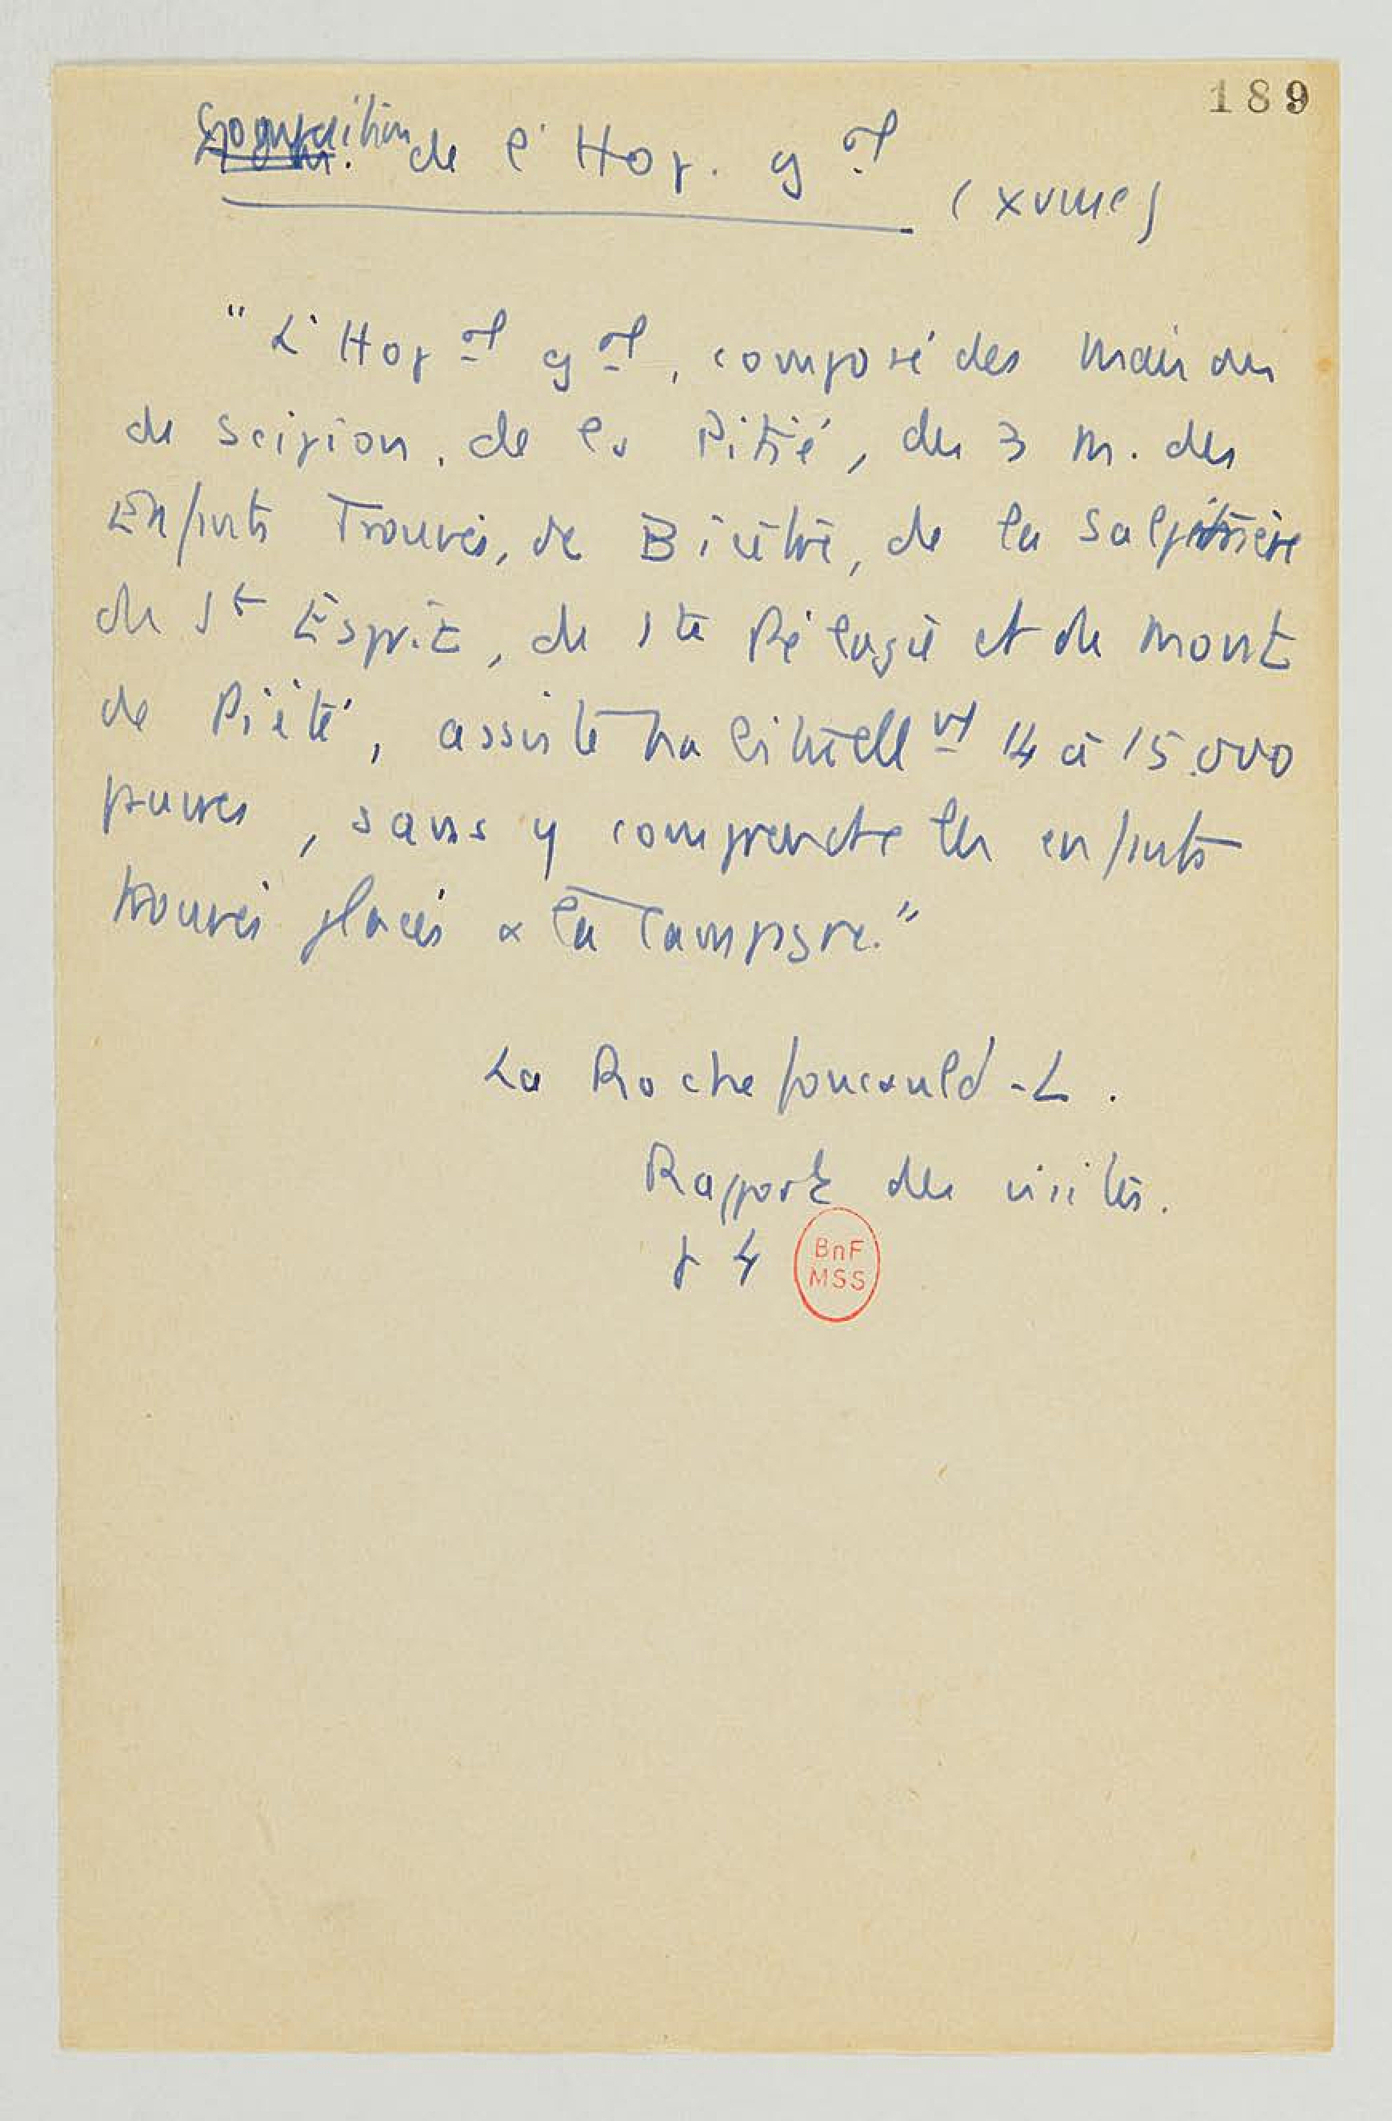 189
Composition de l'Hop. gal
(XVIIIe)
"L'Hopal gal, composé des maisons
de Scipion, de la Pitié, des 3 m. des
Enfants Trouvés, de Bicêtre, de la Salpêtrière
du St Esprit, de Ste Pélagie et du Mont
de Piété, assiste habituellemt 14 à 15.000
pauvres, sans y comprendre les enfants
trouvés placés à la campagne."
La Rochefoucauld-L.
Rapport des visites.
p 4
BnF
MSS